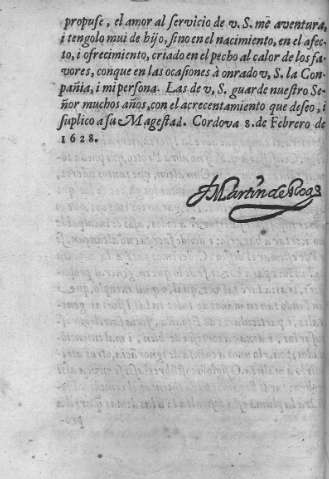 propuse, el amor al servicio de v. S. me aventura,
i tengolo mui de hijo, sino en el nacimiento, en el afec-
to, i ofrecimiento, criado en el pecho al calor de los fa-
vores, con que en las ocasiones à onrado v. S. la Com
pañia, i mi persona. Las de v. S. guarde nuestro Se-
ñor muchos años, con el acrecentamiento que deseo, i
suplico a su Magestad. Cordova 8. de Febrero de
1628.
Martin de Roa